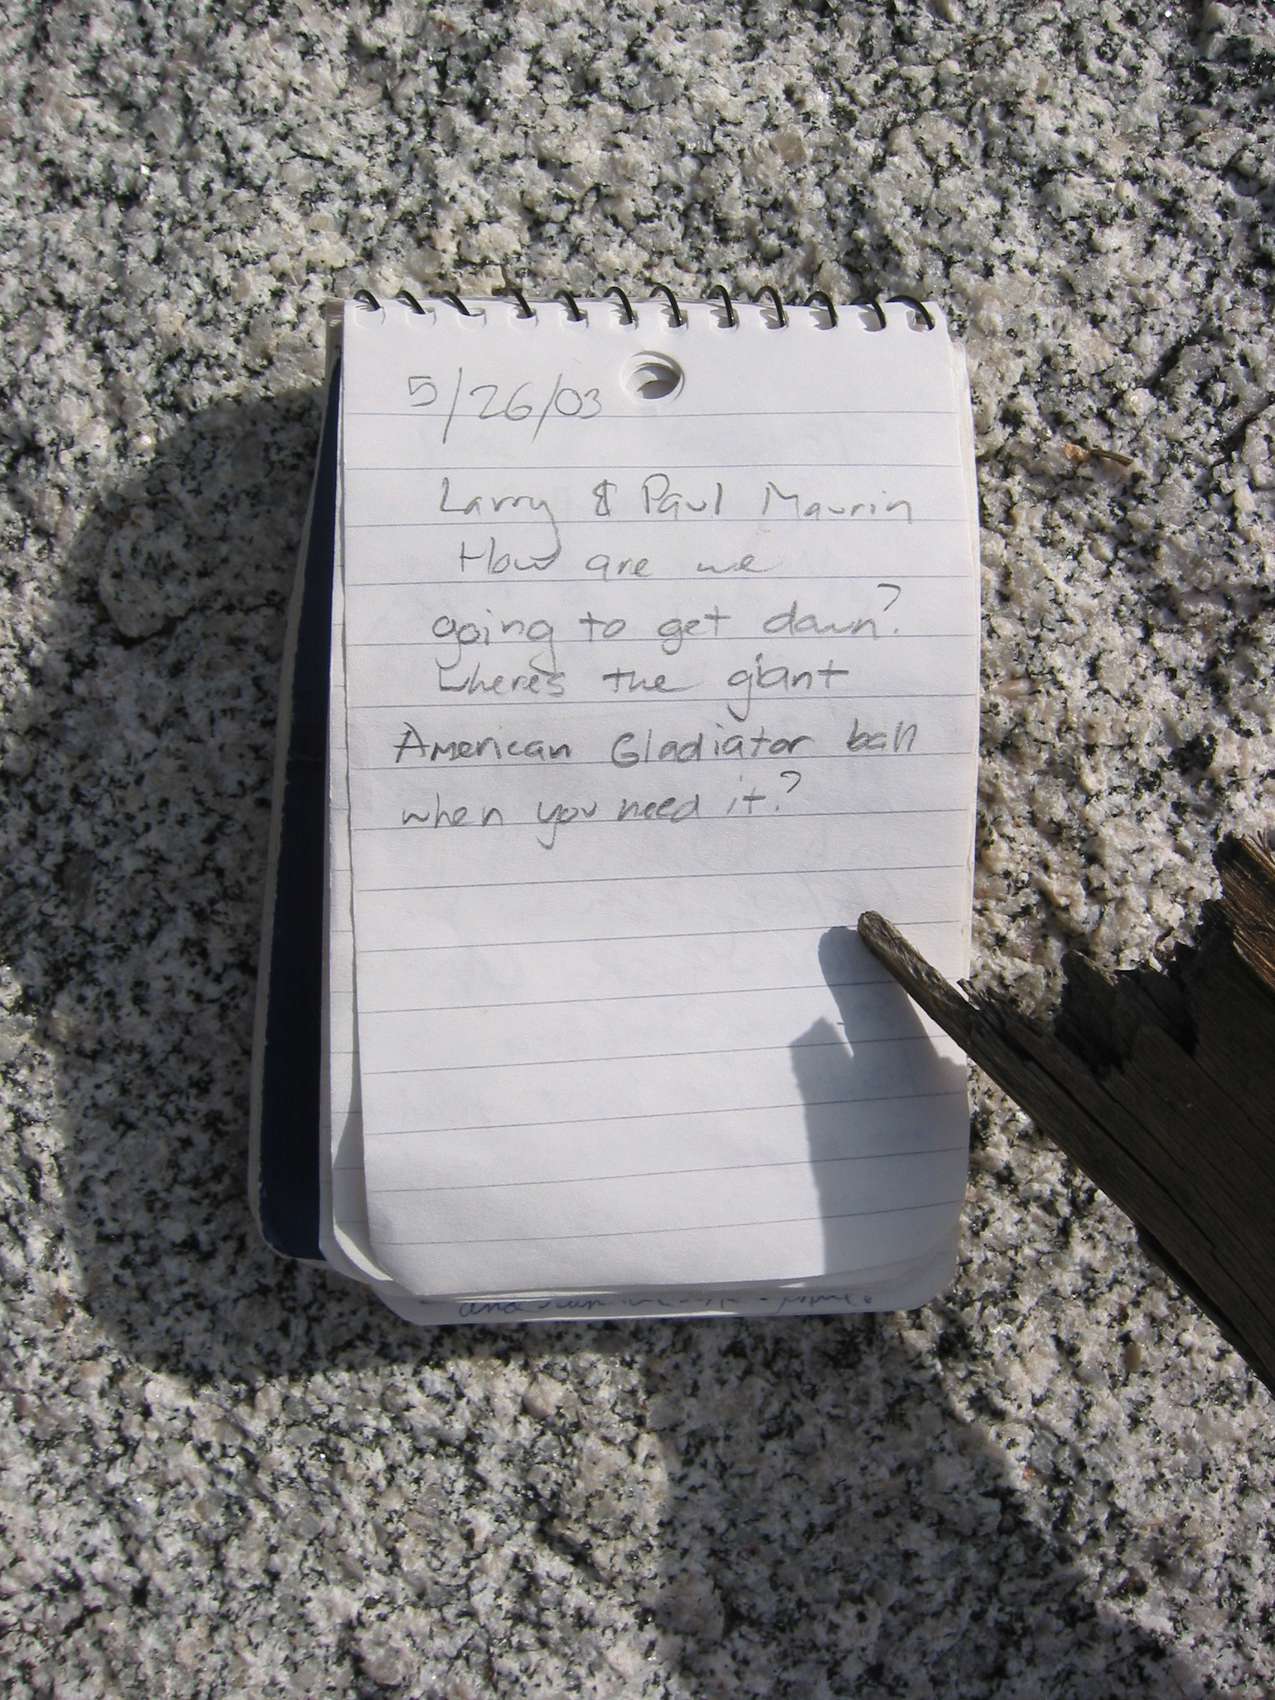 5/26/03
Larry & Paul Maurin
How are we
going to get down?
Where's the giant
American Gladiator ball
when you need it?
and